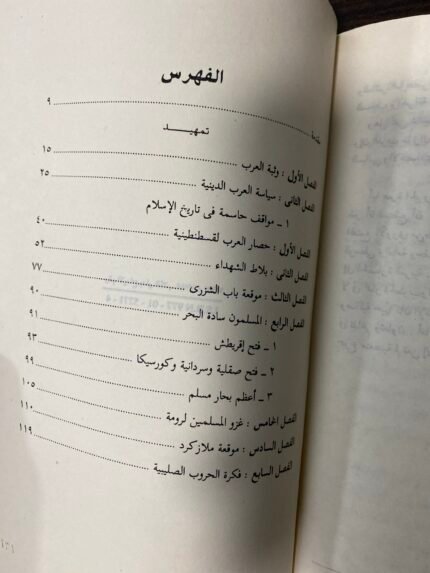 الفهرس
مقدمة ٩
تمهيـــد
الفصل الأول : وثبة العرب ١٥
الفصل الثانى : سياسة العرب الدينية ٢٥
١ ـ مواقف حاسمة فى تاريخ الإسلام
الفصل الأول : حصار العرب لقسطنطينية ٤٠
الفصل الثانى : بلاط الشهداء ٥٢
الفصل الثالث : موقعة باب الشزرى ٧٧
الفصل الرابع : المسلمون سادة البحر ٩٠
١ ـ فتح إقريطش ٩١
٢ ـ فتح صقلية وسردانية وكورسيكا ٩٣
٣ ـ أعظم بحار مسلم ٩٩
الفصل الخامس : غزو المسلمين لرومة ١٠٥
الفصل السادس : موقعة ملازكرد ١١٠
الفصل السابع : فكرة الحروب الصليبية ١١٩